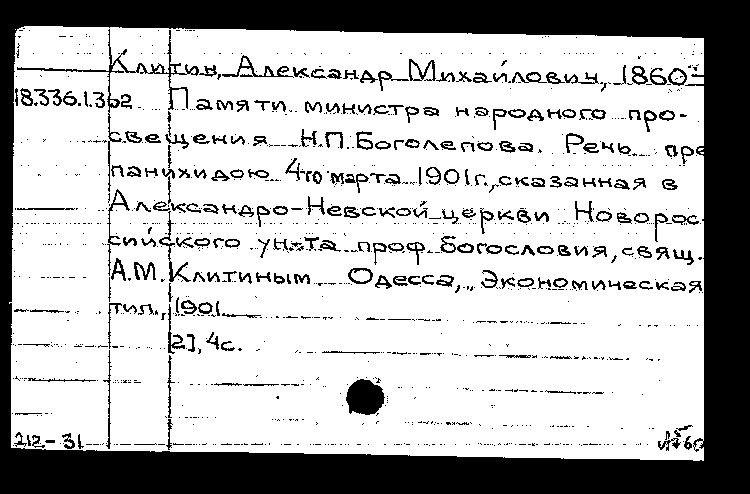 Клитин, Александр Михайлович, 1860-
18.336.1.362 Памяти министра народного про-
свещения Н.П.Боголепова. Речь пре
панихидою 4го марта 1901г., сказанная в
Александро-Невской церкви Новорос-
сийского ун-та проф. богословия, свящ.
А.М. Клитиным Одесса, „Экономическая
тип., 1901
[2], 4с.
212-31